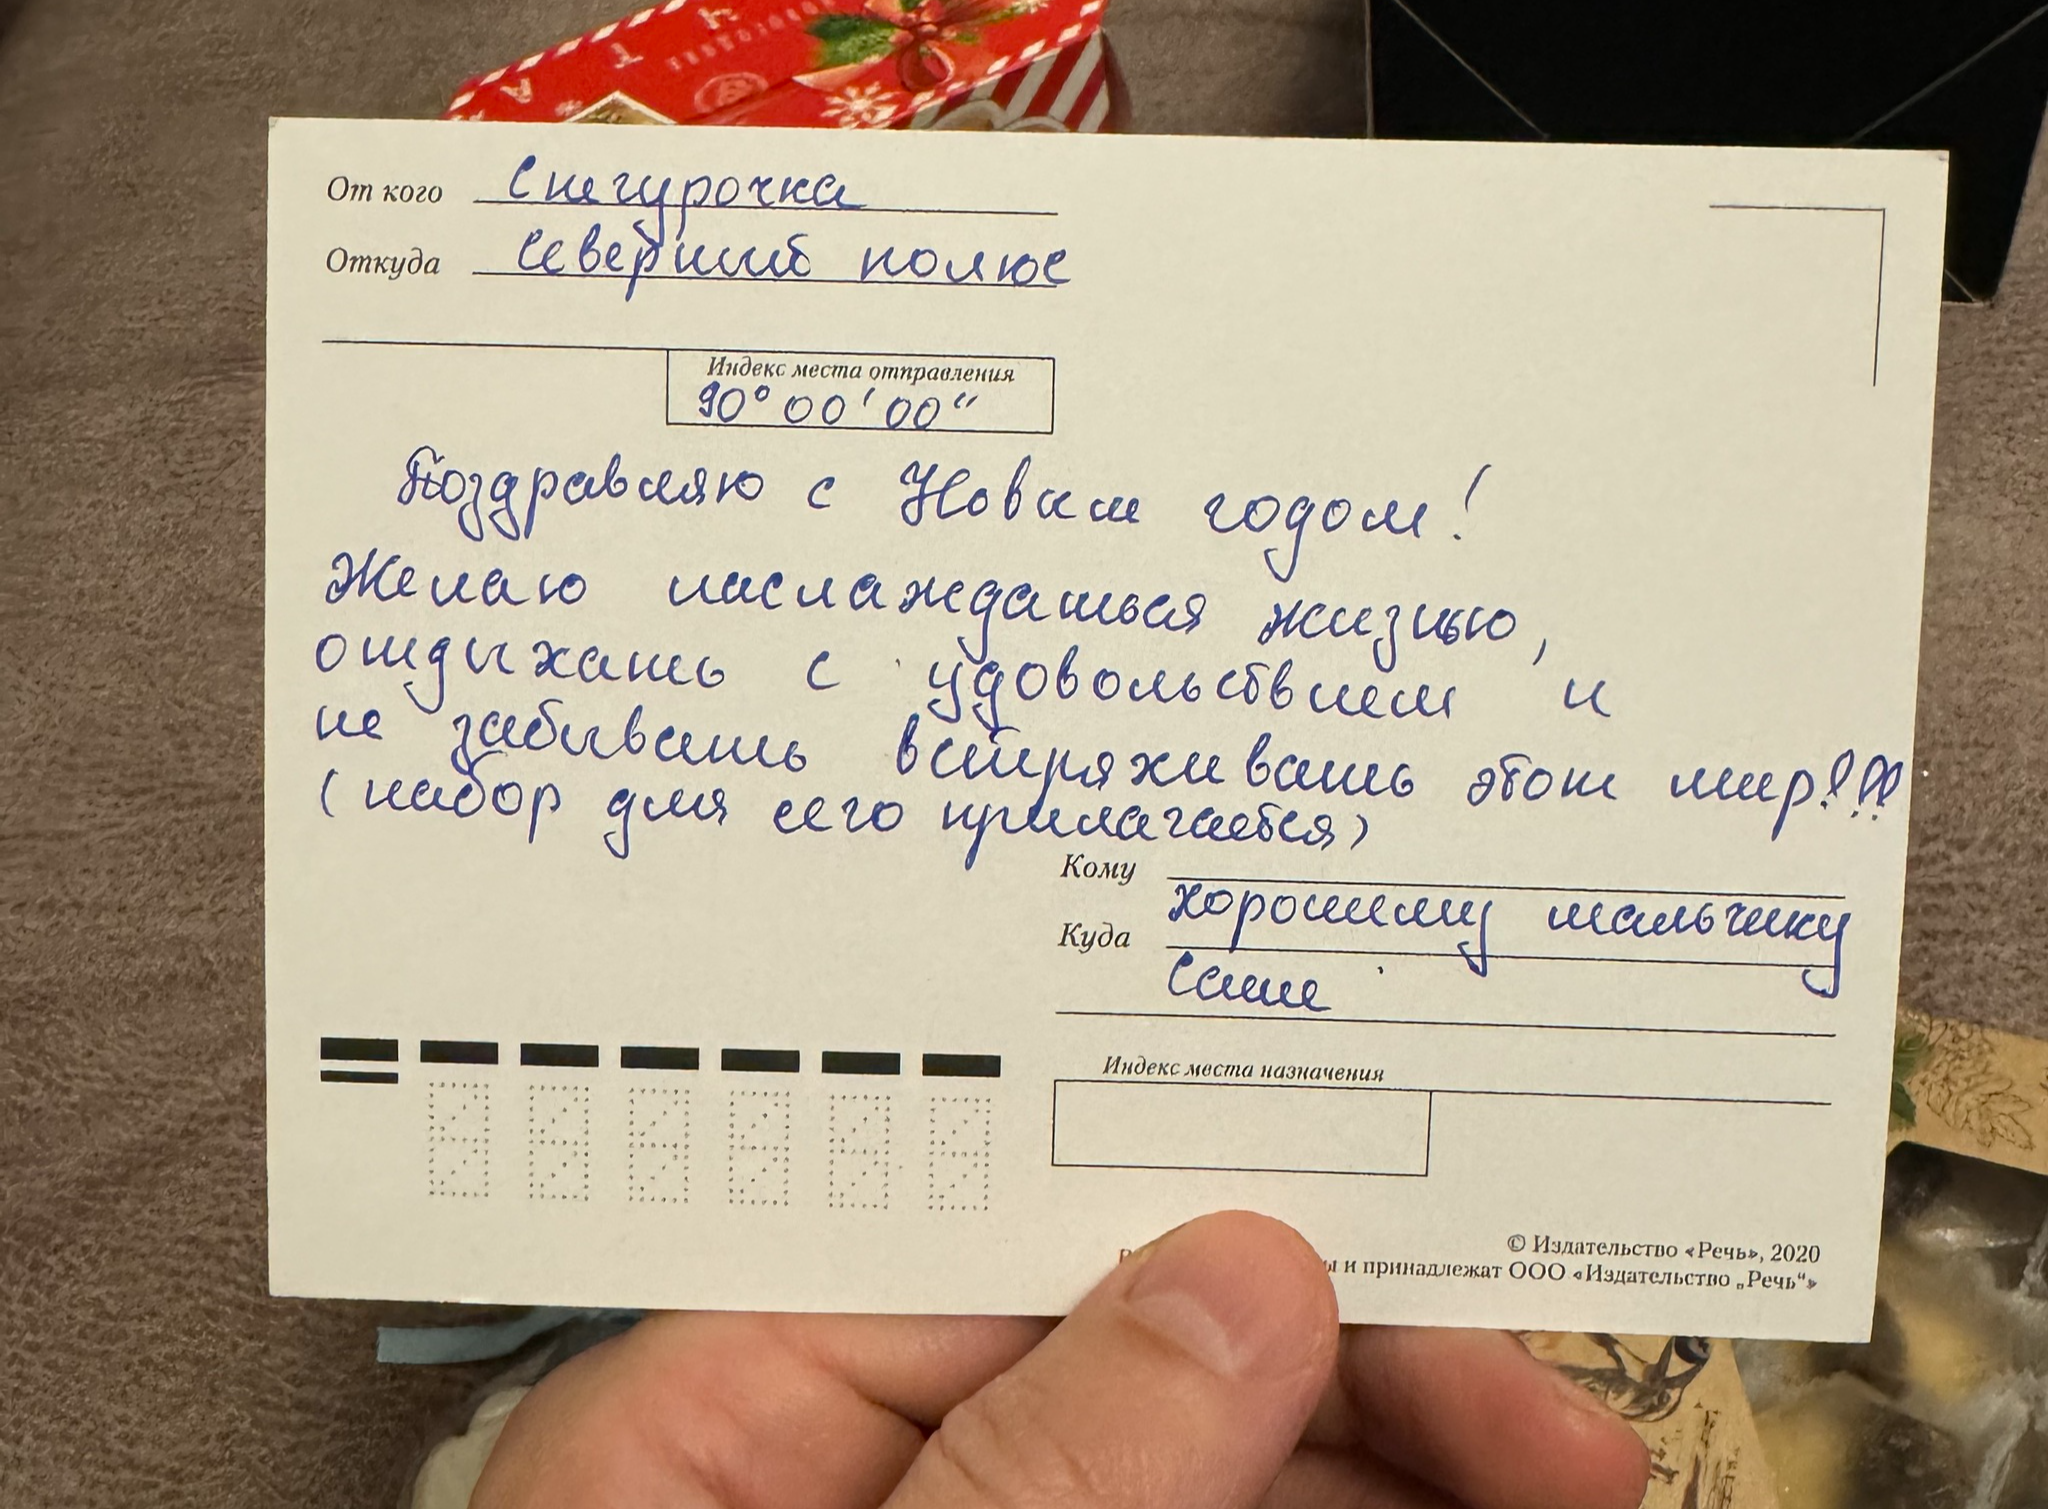 От кого Снегурочка
Откуда Северный полюс
Индекс места отправления
90° 00' 00"
Поздравляю с Новым годом!
Желаю наслаждаться жизнью,
отдыхать с удовольствием и
не забывать встряхивать этот мир!!!
(набор для сего прилагается)
Кому
хорошему мальчику
Куда
Саше
Индекс места назначения
© Издательство «Речь», 2020
и принадлежат ООО «Издательство „Речь“»